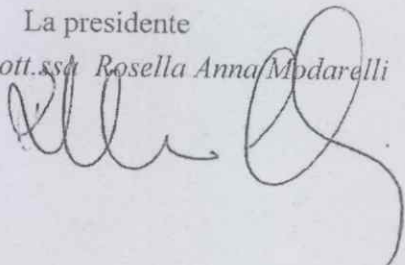 La presidente
ott.ssa Rosella Anna Modarelli